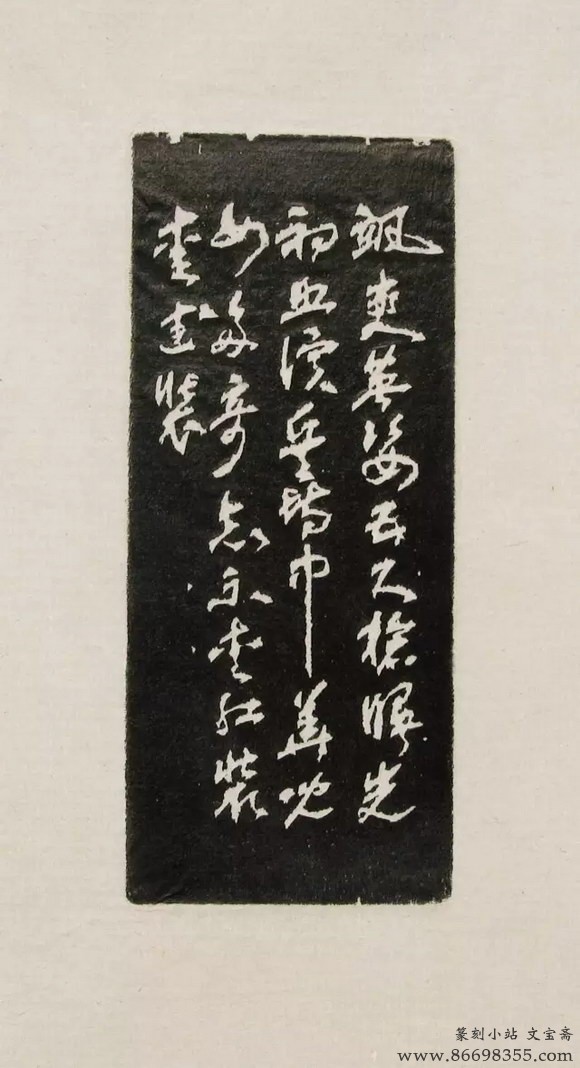 飒爽英姿五尺枪曙光
初照演兵场中华儿
女多奇志不爱红装
爱武装
篆刻小站 文宝斋
www.86698355.com